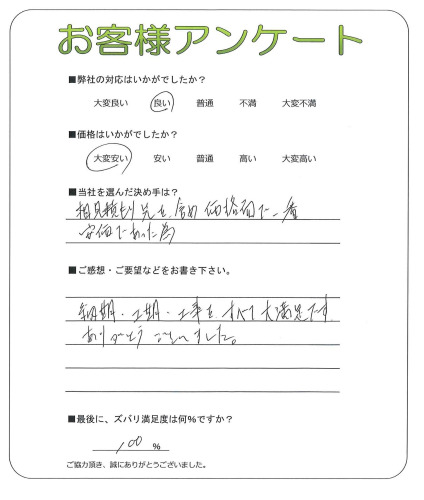 お客様アンケート
■弊社の対応はいかがでしたか？
大変良い 良い 普通 不満 大変不満
■価格はいかがでしたか？
大変安い 安い 普通 高い 大変高い
■当社を選んだ決め手は？
相見積もり先を含め価格面で一番
安価であった為
■ご感想・ご要望などをお書き下さい。
納期・工期・工事をすべて大満足です
ありがとうございました。
■最後に、ズバリ満足度は何％ですか？
100 ％
ご協力頂き、誠にありがとうございました。